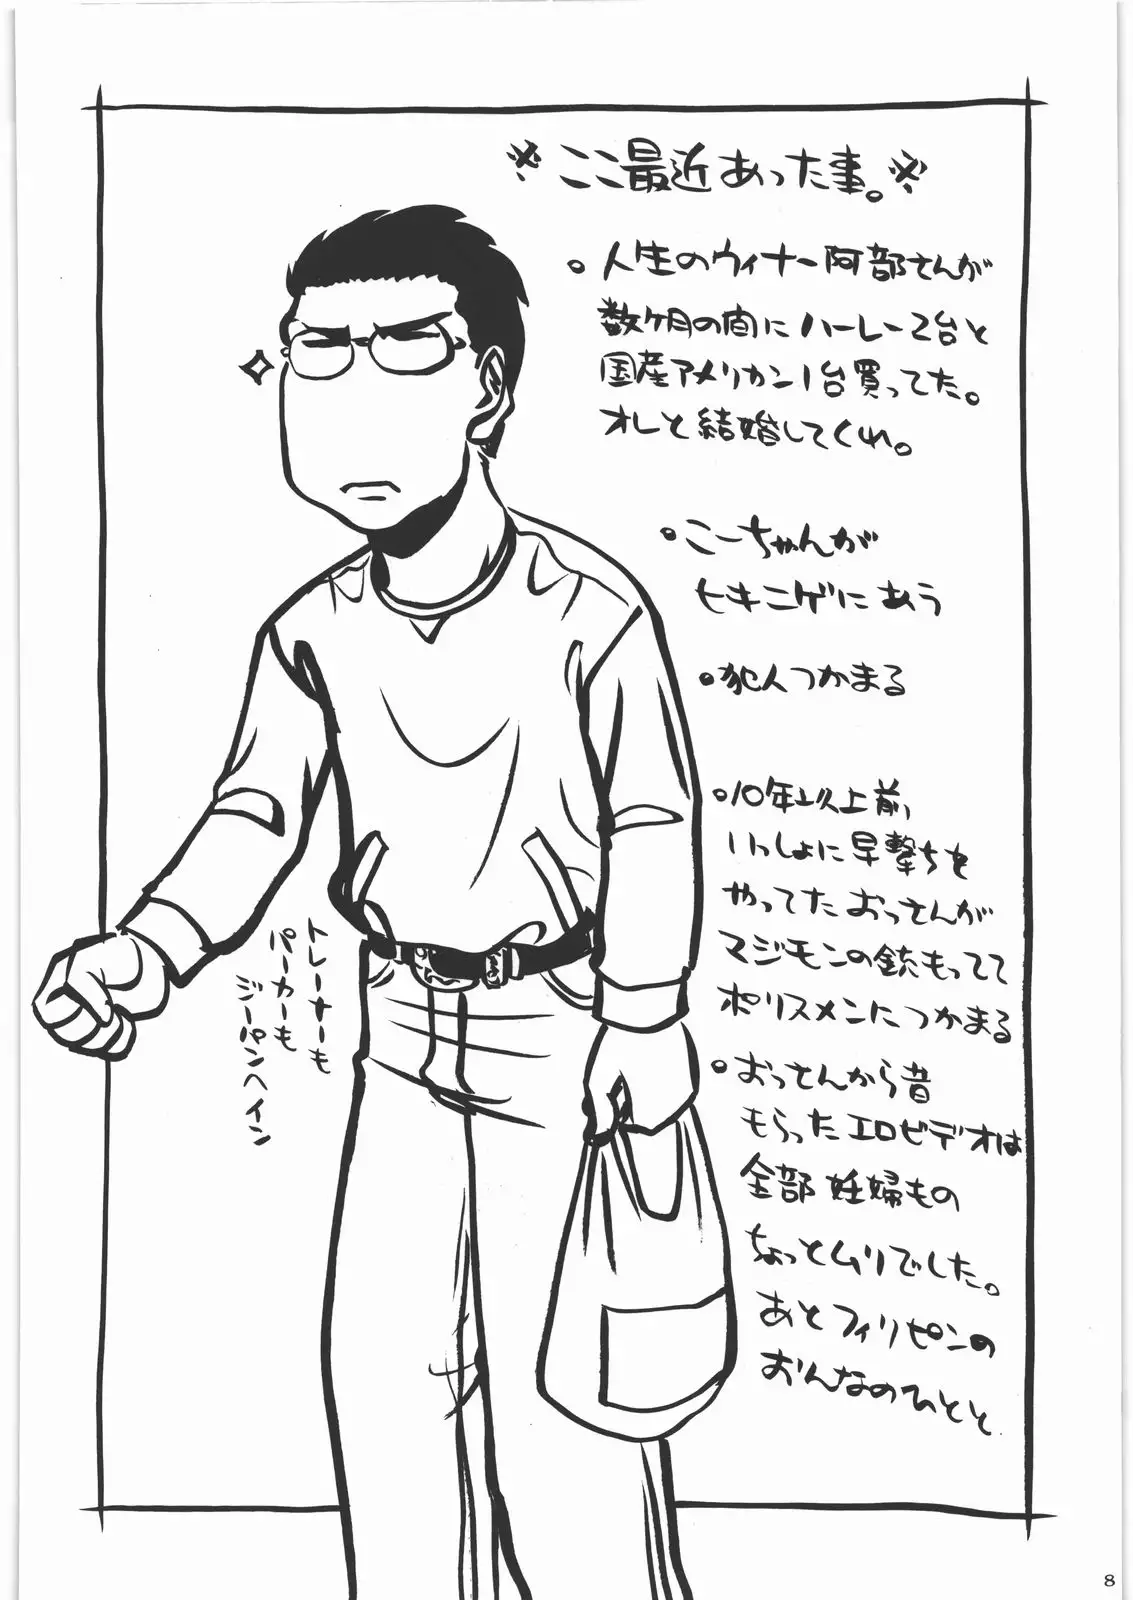 ※ここ最近あった事。※
。人生のウィナー阿部さんが
数ヶ月の間にハーレー2台と
国産アメリカン1台買ってた。
オレと結婚してくれ。
・こーちゃんが
ヒキニゲにあう
・犯人つかまる
・10年以上前、
いっしょに早撃ちを
やってたおっさんが
マジモンの銃もってて
ポリスメンにつかまる
・おっさんから昔
もらったエロビデオは
全部妊婦もの
ちょっとムリでした。
あとフィリピンの
おんなのひとと
トレーナーも
パーカーも
ジーパンへイン
8